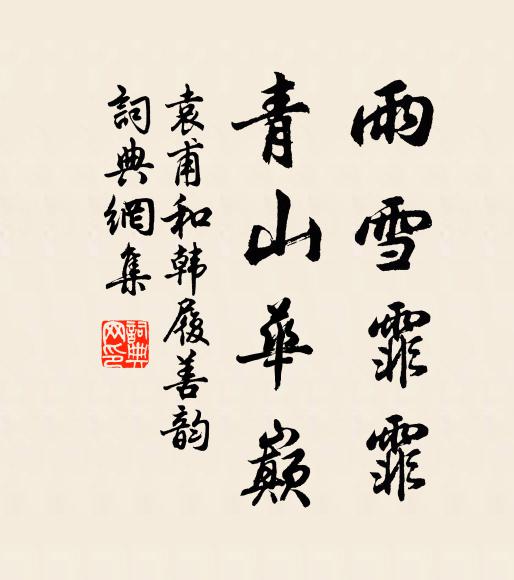 雨雪霏霏
青山華巔
袁甫和韩履善韵
詞典網集
詞典网印